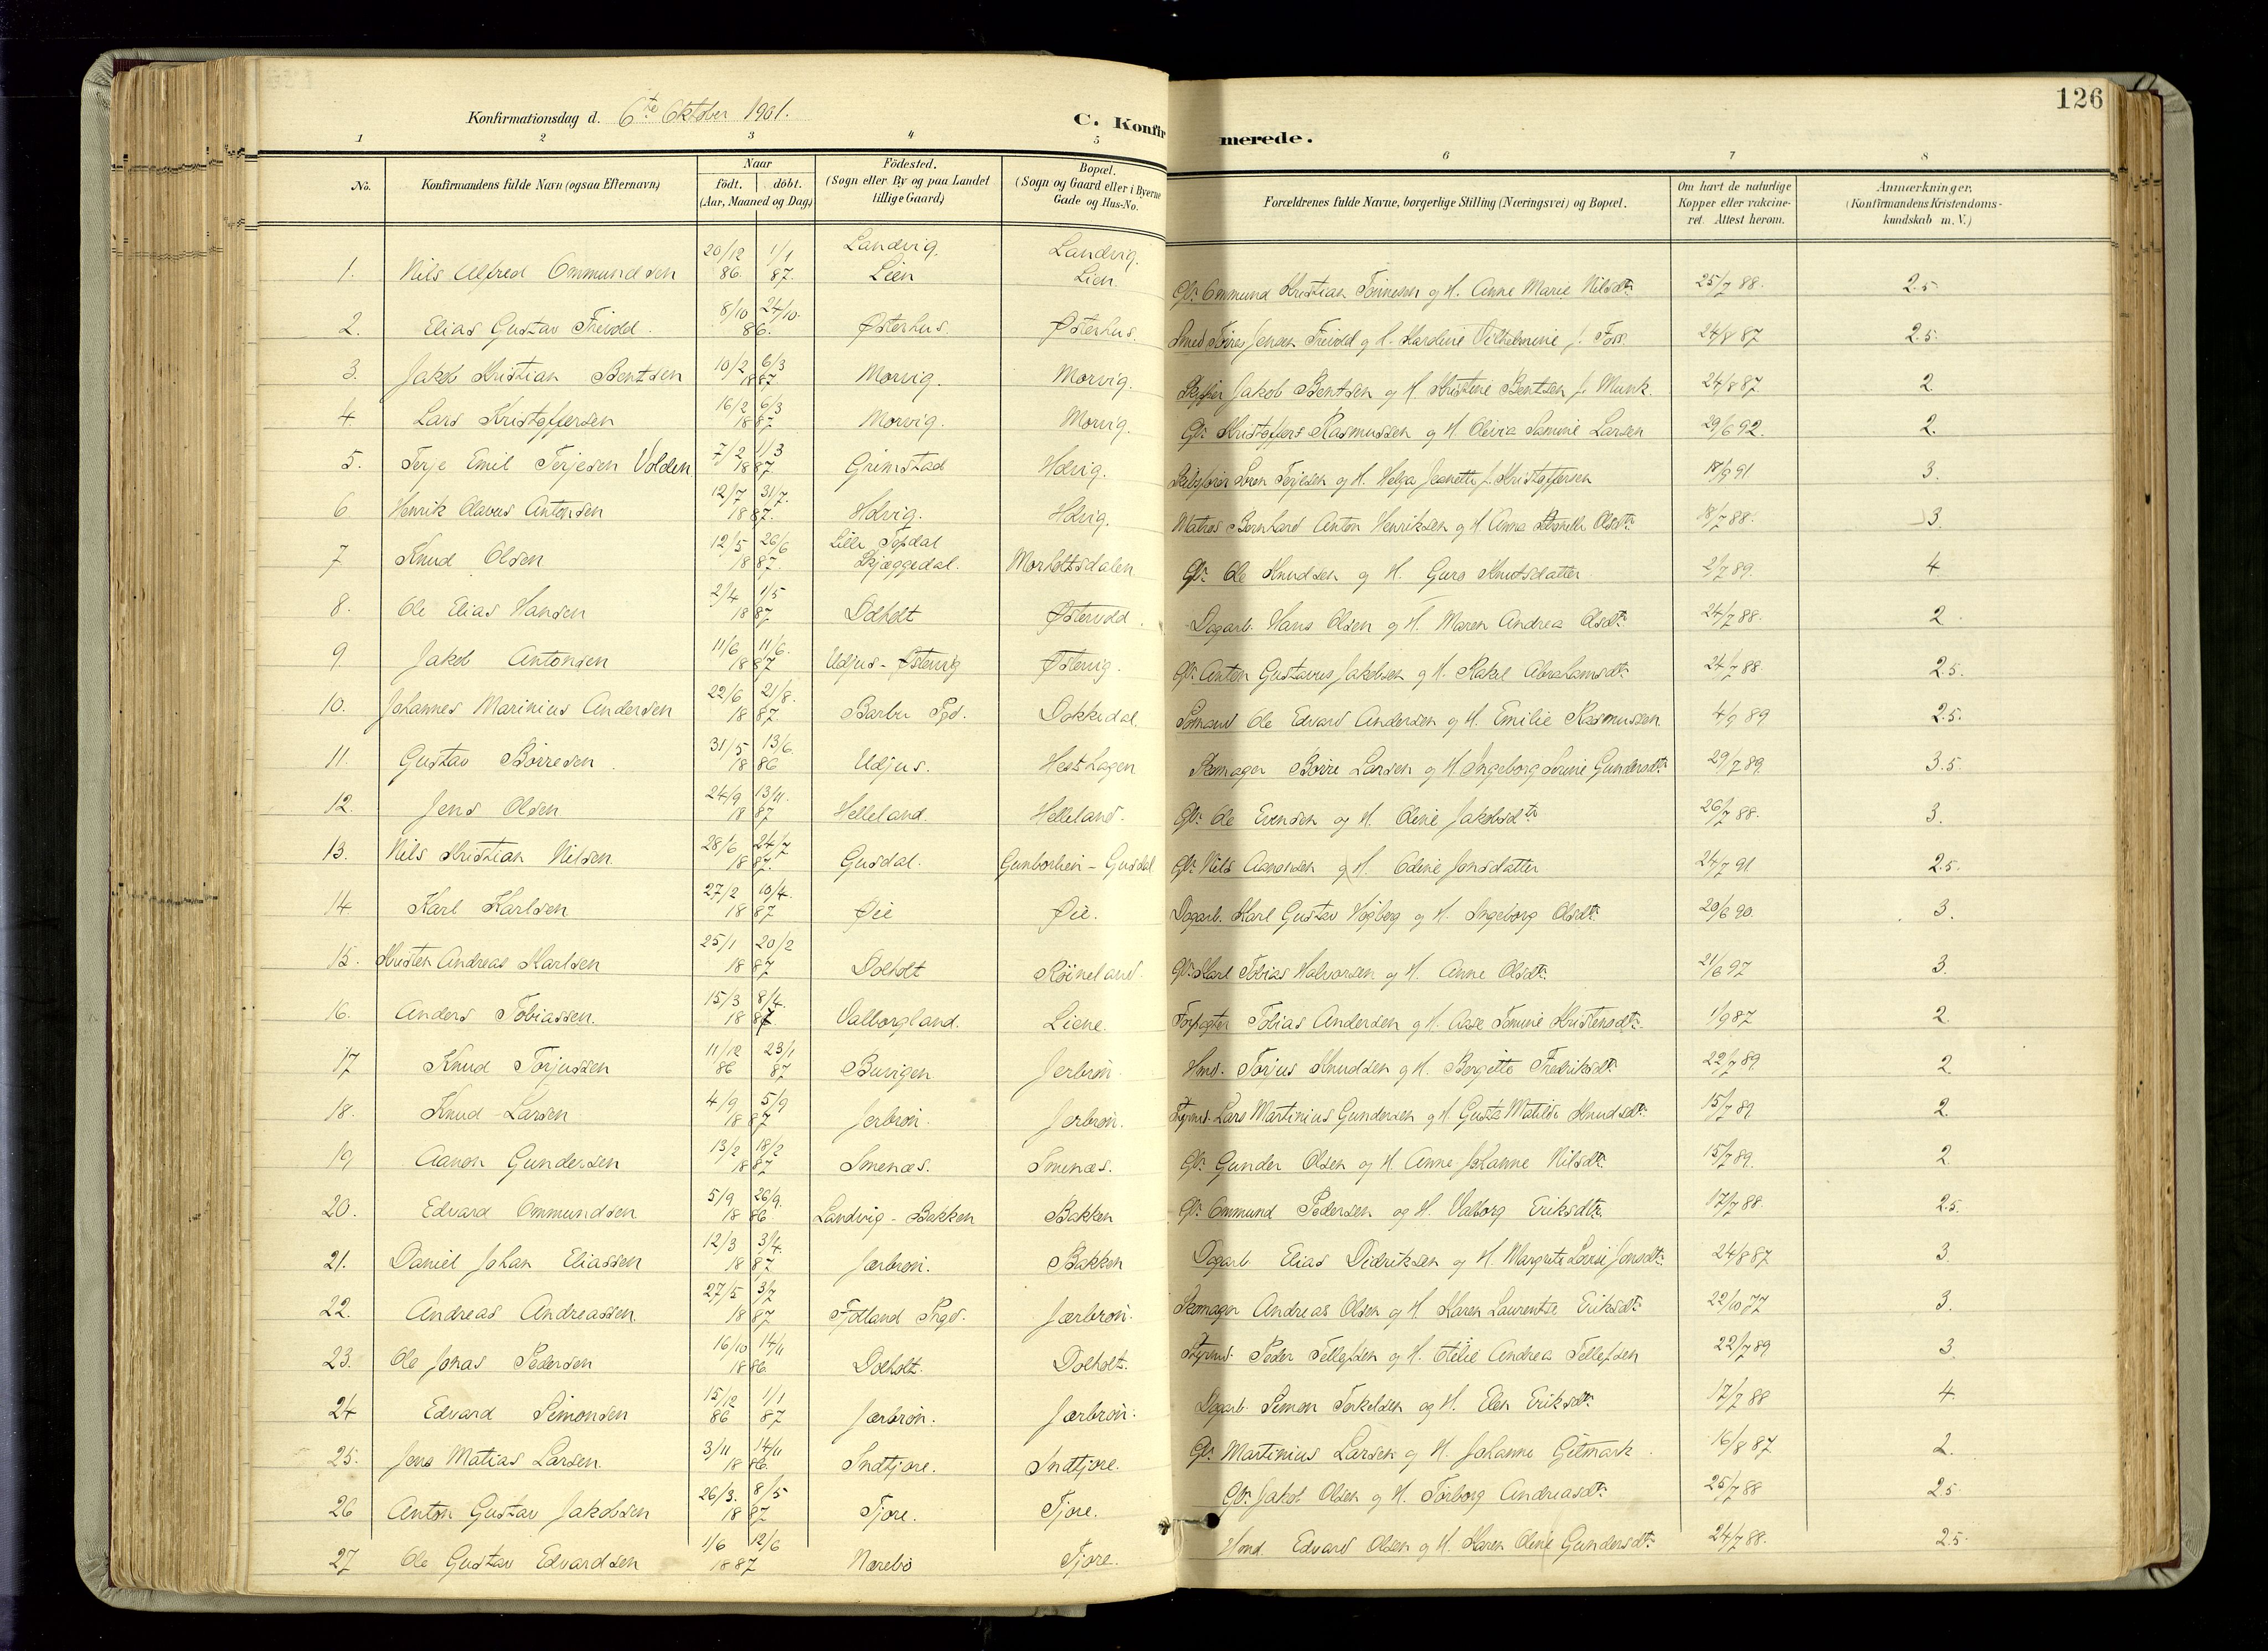 126
Konfirmationsdag d. 6te Oktober 1901.
C. Konfirmerede.
1 2 3 4 5 6 7 8
No.
Konfirmandens fulde Navn (ogsaa Efternavn)
Naar
födt. döbt.
(Aar, Maaned og Dag)
Födested.
(Sogn eller By og paa Landet
tillige Gaard)
Bopæl.
(Sogn og Gaard eller i Byerne
Gade og Hus-No.
Forældrenes fulde Navne, borgerlige Stilling (Næringsvei) og Bopæl.
Om havt de naturlige
Kopper eller vakcine-
ret. Attest herom.
Anmærkninger,
(Konfirmandens Kristendoms-
kundskab m. V.)
1. Nils Alfred Ommundsen 20/12 86. 1/1 87. Landvig. Lien Landvig. Lien. Gbr. Ommund Kristian Tønnesen og H. Anne Marie Nilsdtr. 25/7 88. 2.5
2. Elias Gustav Freivold. 8/10 24/10. 86. Østerhus. Østerhus. Smed Jensen Freivold og H. Vilhelmine f. Foss 24/8 87 2.5.
3. Jakob Kristian Bentsen 10/2 6/3 1887. Morvig. Morvig. Skipper Jakob Bentsen og H. Kristine Bentsen f. Munk. 24/8 87. 2
4. Lars Kristoffersen 16/2 6/3 1887 Morvig. Morvig. Gbr. Kristoffer Rasmussen og H. Olivia Samine Larsen 29/6 92. 2.
5. Terje Emil Terjesen Volden 7/2 11/3 1887 Grimstad Holvig. Skibsfører Søren Terjesen og H. Helga Jeanette f. Kristoffersen 17/9 91 3
6. Henrik Olavus Antonsen 12/7 31/7. 1887. Holvig. Holvig. Matros Bernhard Anton Henriksen og H. Anna Olsdtr. 18/7 88. 3.
7 Knud Olsen 12/5 26/6 1887. Lille Topdal Skjæggedal. Morholtsdalen Gbr. Ole Knudsen og H. Guro Knutsdatter 2/7 89. 4.
8. Ole Elias Hansen 2/4 1/5 1887 Dolholt Østervold. Dagarb. Hans Olsen og H. Maren Andrea Olsdtr. 24/7 88. 2
9. Jakob Antonsen 11/6 11/6. 1887 Udjus-Østervig Østervig. Gbr. Anton Gustavus Jakobsen og H. Rakel Abrahamsdtr. 24/7 88 2.5.
10. Johannes Marinius Andersen 22/6 21/8. 1887 Barbu Pgd. Dokkedal. Sømand Ole Edvard Andersen og H. Emilie Rasmussen 4/9 89 2.5.
11. Gustav Børresen. 31/5 13/6. 1886 Udjus. Hestehagen Skomager Børre Larsen og H. Ingeborg Serine Gundersdtr. 29/7 89. 3.5.
12. Jens Olsen. 24/9 13/11. 1887 Helleland. Helleland. Gbr. Ole Evensen og H. Oline Jakobsdtr 26/7 88. 3.
13. Nils Kristian Nilsen 28/6 24/7 1887. Gusdal. Gunborlien - Gusdal Gbr. Nils Aanonsen og H. Odine Jonsdatter 24/7 91 2.5.
14 Karl Karlsen 27/2 10/4. 1887 Øie Øie. Dagarb. Karl Gustav Høgberg og H. Ingeborg Olsdtr. 20/6 90. 3.
15. Kristen Andreas Karlsen 25/1 20/2 1887 Dolholt Røineland. Gbr. Karl Tobias Halvorsen og H. Anne Olsdtr. 21/6 97 3.
16. Anders Tobiassen. 15/3 8/4. 1887 Valborgland. Liene. Forpagter Tobias Andersen og H. Aase Tomine Kristensdtr. 1/9 87 2.
17 Knud Torjussen 11/12 86 23/1 87 Buvigen Jerbrøn. Hmd. Torjus Knudsen og H. Bergitte Fredriksdtr. 22/7 89. 2.
18. Knud Larsen 4/9 5/9 1887 Jerbrøn. Jerbrøn. Styrmd. Lars Martinius Gundersen og H. Gusta Matilde Knudsdtr. 15/7 89 2.
19 Aanon Gundersen 13/2 18/2 1887 Smenæs. Smenæs. Gbr. Gunder Olsen og H. Anne Johanne Nilsdtr. 15/7 89. 2.
20. Edvard Ommundsen 5/9 26/9. 1886. Landvig - Bakken Bakken Gbr. Ommund Pedersen og H. Valborg Eriksdtr. 17/7 88. 2.5.
21. Daniel Johan Eliassen 12/3 3/4. 1887 Jærbrøn. Bakken Dagarb. Elias Didriksen og H. Margrete Jonsdtr. 24/8 87 3.
22. Andreas Andreassen. 27/5 3/7 1887 Fjotland Prgd. Jærbrøn. Skomager Andreas Olsen og H. Karen Laurentze Eriksdtr. 22/10 77 3.
23. Ole Jonas Pedersen 16/10 14/11 1886. Dolholt. Dolholt. Styrmd. Peder Tellefsen og H. Otilie Andrea Tellefsen 22/7 89 3.
24 Edvard Simonsen 15/12 86 1/1 87 Jærbrøn. Jærbrøn. Dagarb. Simon Torkelsen og H. Elen Eriksdtr. 17/7 88 4.
25. Jens Matias Larsen. 3/11 14/11 1886. Indtjore. Indtjore. Gbr. Martinius Larsen og H. Johanne Gitmark. 16/8 87 2.
26 Anton Gustav Jakobsen 26/3. 8/5 1887 Tjore. Tjore. Gbr. Jakob Olsen og H. Torborg Andreasdtr. 25/7 88 2.5
27 Ole Gustav Edvardsen 1/6 12/6 1887 Nærebø Tjore. Hmd. Edvard Olsen og H. Karen Oline Gundersdtr. 24/7 88. 2.5.